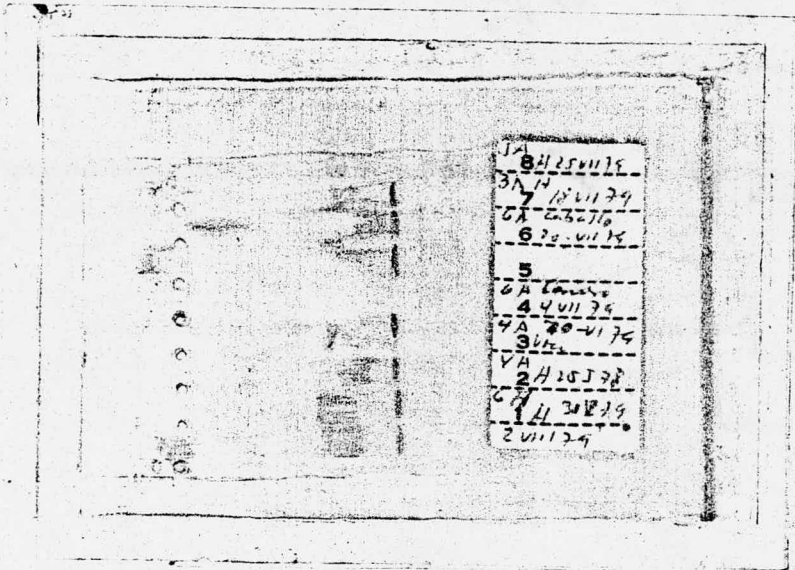 3A
8 H 25 VII 79
3A H
7 18 VII 79
6A Caballo
6 20-VII 79
5
6A
4 4 VII 79
4A 20-VI 79
3
4A
2 H 25 I 78
6 H
1 H 79
2 VIII 79